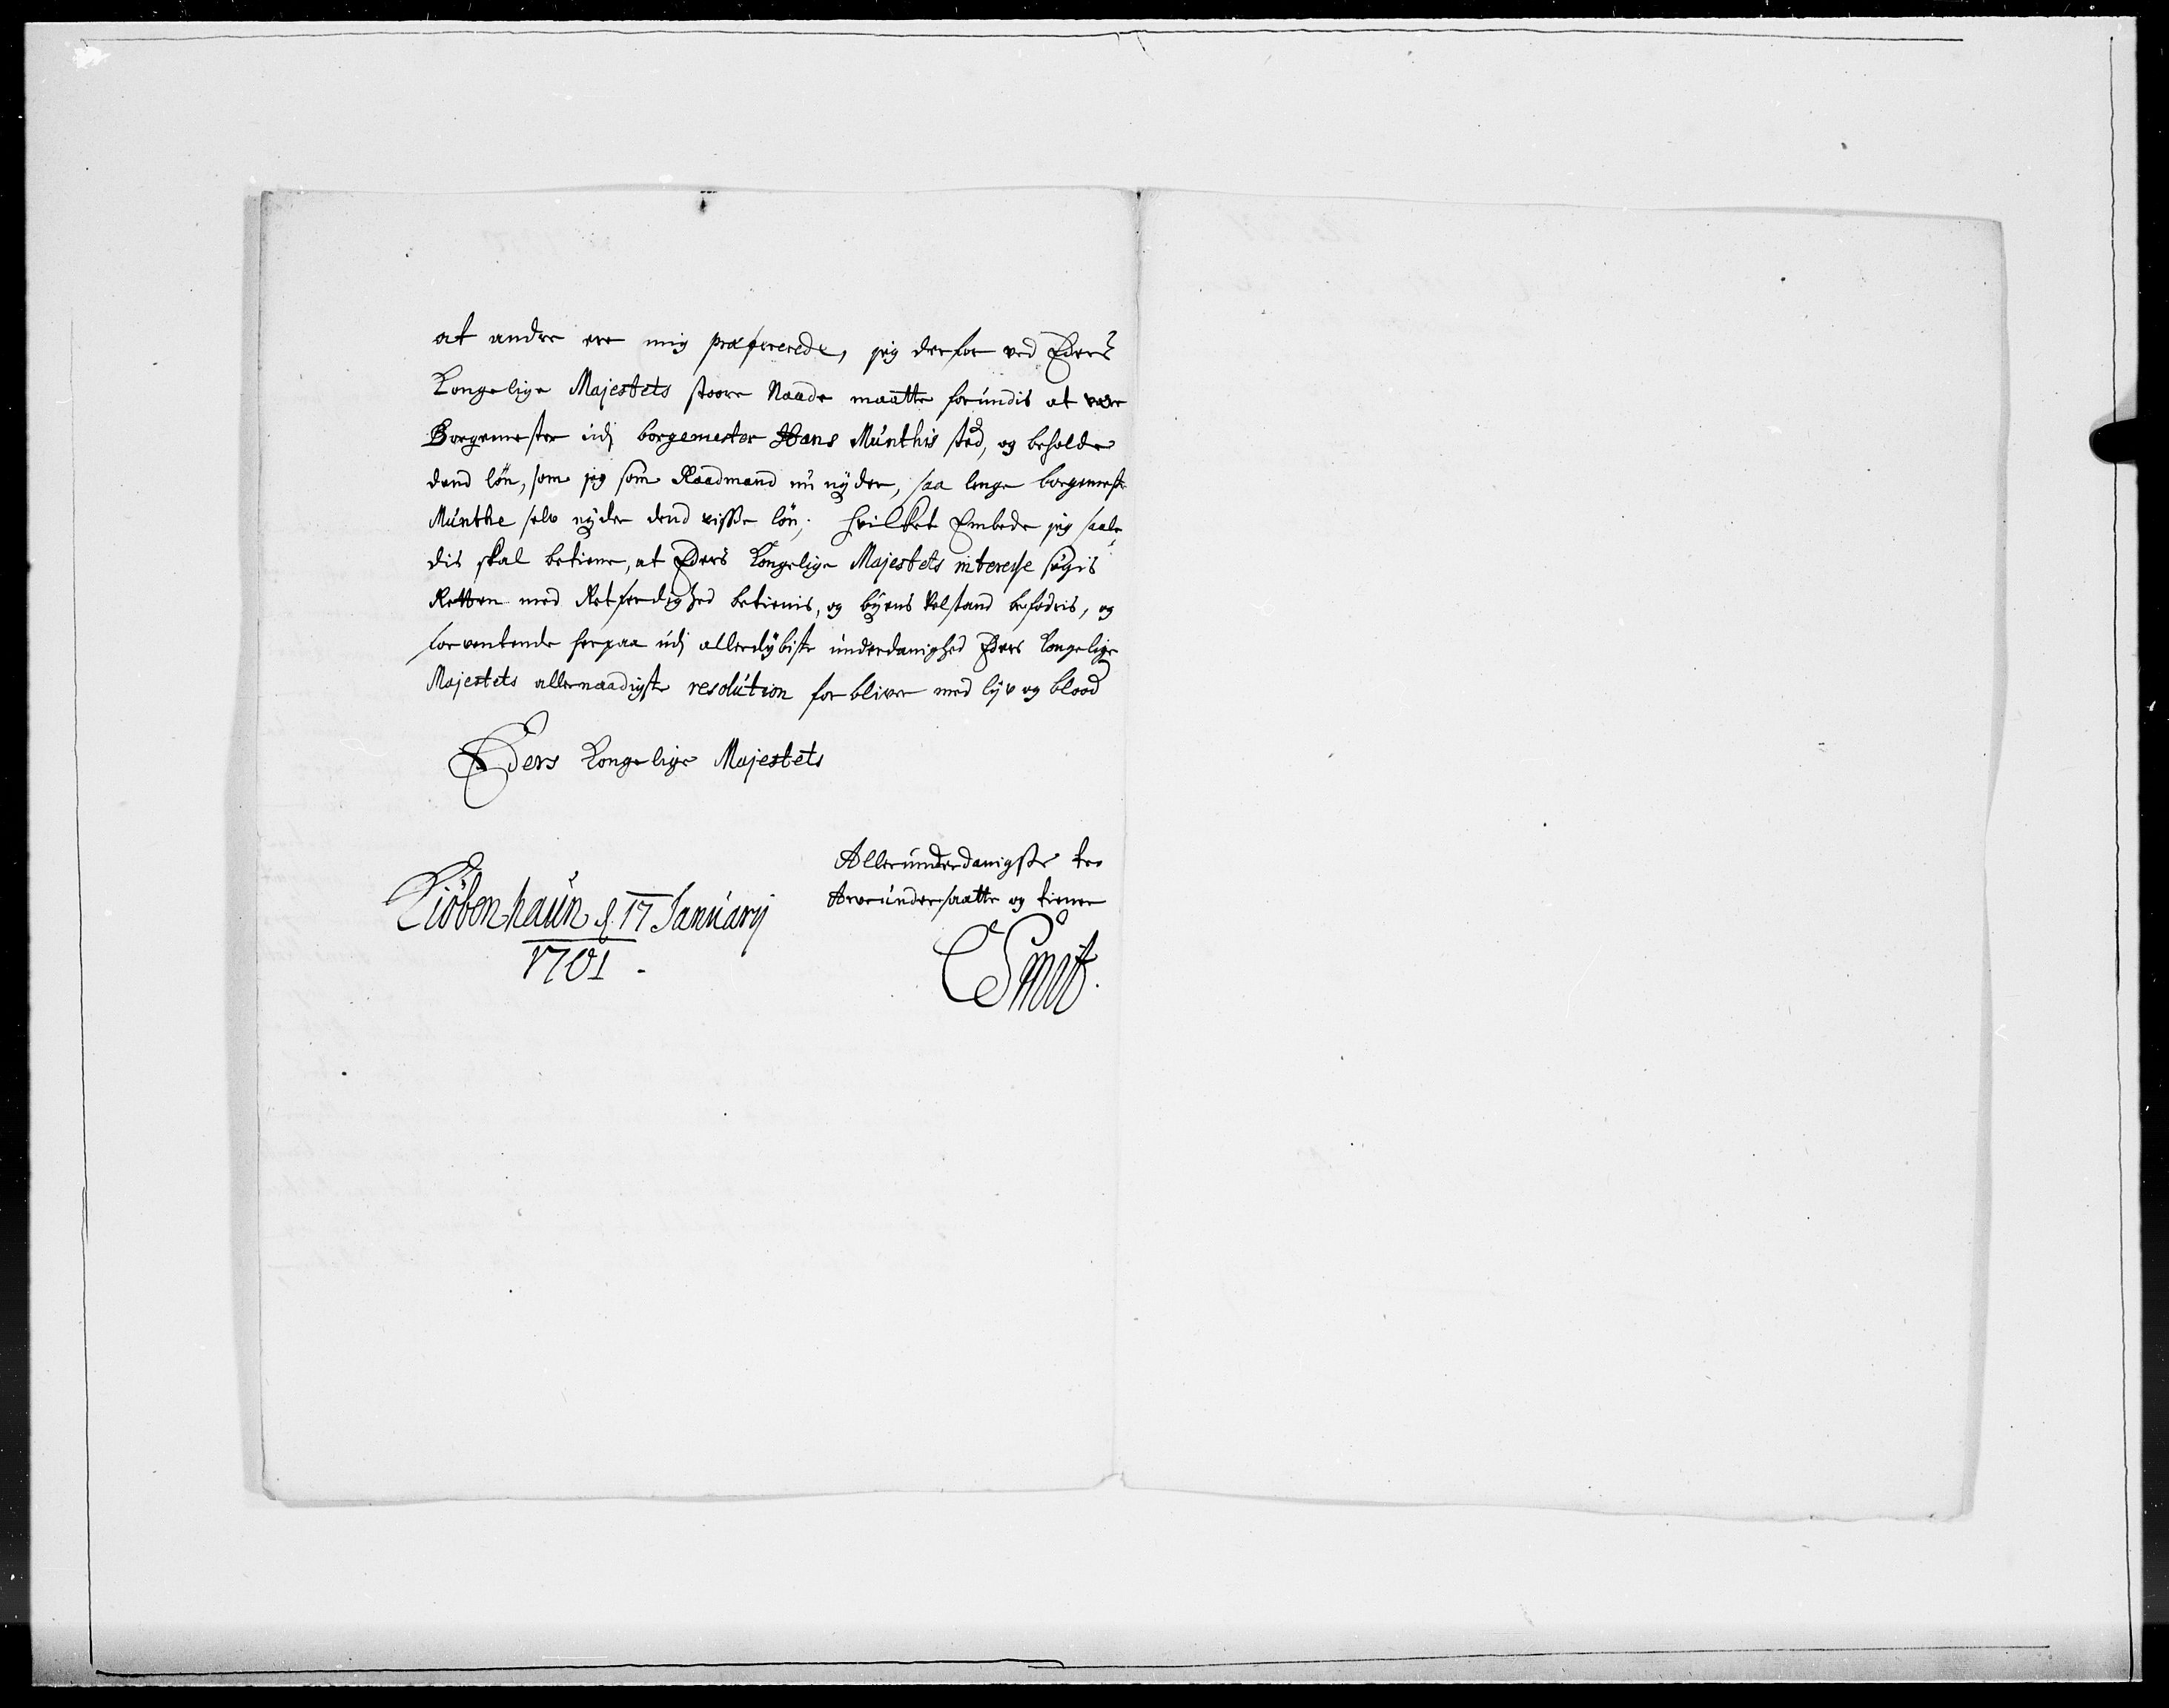 at andre ere mig præfererede, jeg derfor ved Eders
Kongelige Majestets stoore Naade maatte forundis at være
Borgemester udj borgemester Hans Munthis sted, og beholde
dend lön, som jeg som Raadmand nu nyder, saa lenge borgemest
Munthe selv nyder dend visse lön; hvilket Embede jeg saale
dis skal betiene, at Eders Kongelige Majestets interesse søgis
Retten med Retferdighed betienis, og byens Velstand befodris, og
forventende herpaa udj allerdybiste underdanighed Eders Kongelige
Majestets allernaadigste resolution forbliver med lyv og blood
Eders Kongelige Majestets
Allerunderdanigste tro
Arveundersaatte og tiener
Kiöbenhaun d. 17 January
1701.
CSmit.